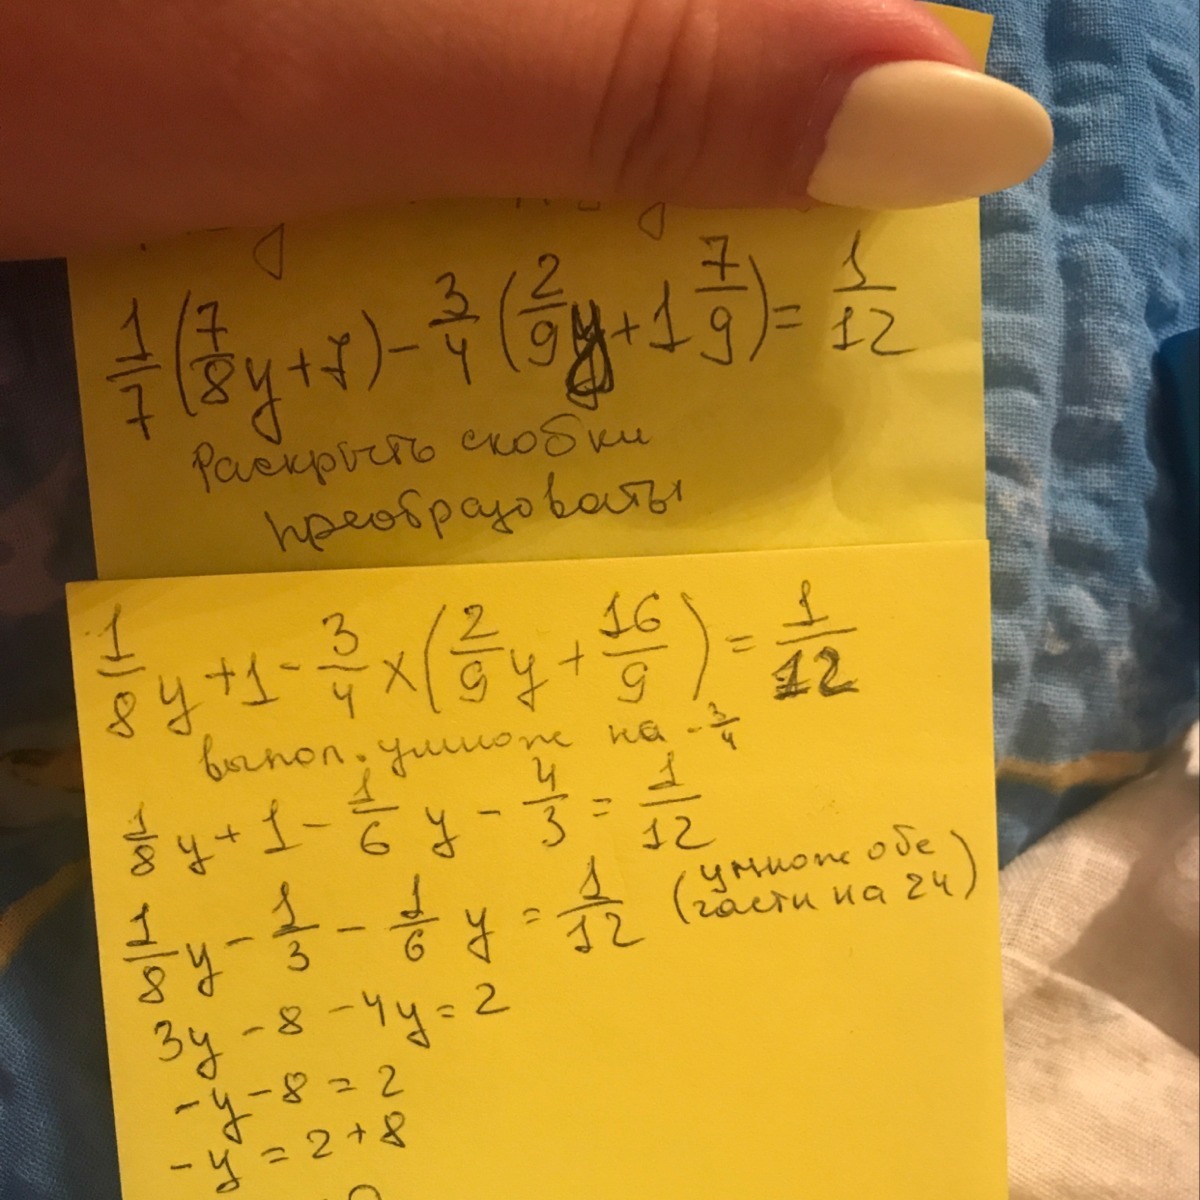 1/7 (7/8 y + 7) - 3/4 (2/9 y + 1 7/9) = 1/12
Раскрыть скобки
преобразовать
1/8 y + 1 - 3/4 × (2/9 y + 16/9) = 1/12
выпол. умнож на - 3/4
1/8 y + 1 - 1/6 y - 4/3 = 1/12
1/8 y - 1/3 - 1/6 y = 1/12 (умнож обе
части на 24)
3y - 8 - 4y = 2
-y - 8 = 2
-y = 2 + 8